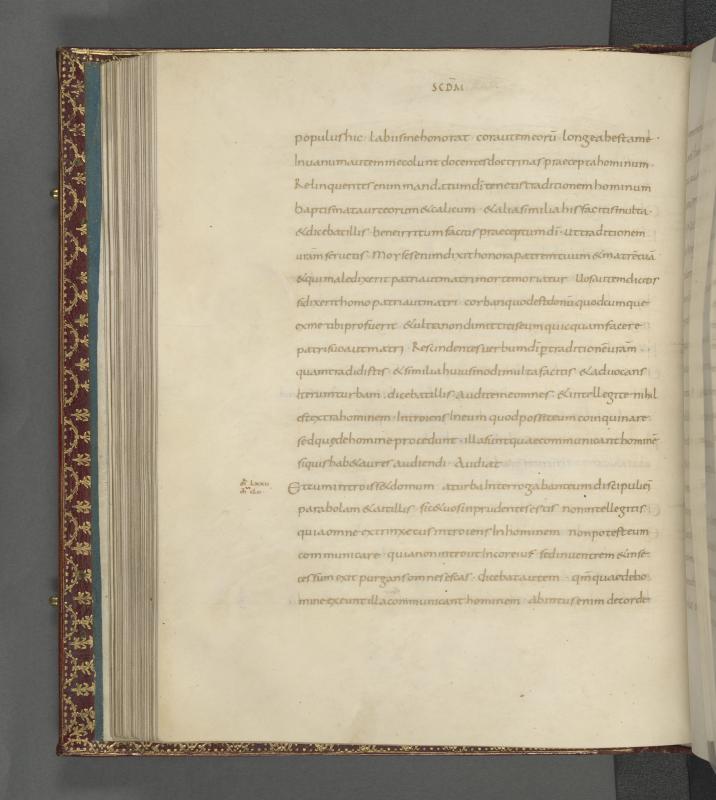 SCDM
populus hic · labiis me honorat · cor autem eorū longe abest a me ·
In uanum autem me colunt docentes doctrinas praecepta hominum ·
Relinquentes enim mandatum dī tenetis traditionem hominum
baptismata urceorum & calicum · & alia similia his facitis multa ·
& dicebat illis · bene irritum facitis praeceptum dī · ut traditionem
uram seruetis · Moyses enim dixit honora patrem tuum & matrē tuā
& qui maledixerit patri aut matri morte moriatur · Uos autem dicitis
si dixerit homo patri aut matri · corban quod est donū quodcumque
ex me tibi profuerit · & ultra non dimittitis eum quicquam facere
patri suo aut matri · Rescindentes uerbum dī p traditionē uram ·
quam tradidistis · & similia huiusmodi multa facitis · & aduocans
iterum turbam · dicebat illis · Audite me omnes · & intellegite · nihil
est extra hominem · Introiens In eum quod possit eum coinquinare ·
sed quę de homine procedunt · illa sunt quae communicant hominē
si quis hab& aures audiendi · Audiat
Et cum introiss& domum a turba Interrogabant eum discipuli ei
parabolam & ait illis · sic & uos inprudentes estis · non intellegitis ·
quia omne extrinsecus introiens In hominem non potest eum
communicare · quia non introit In cor eius · sed in uentrem & in se
cessum exit purgans omnes escas · dicebat autem · qm̄ quae de ho
mine exeunt illa communicant hominem · ab intus enim de corde